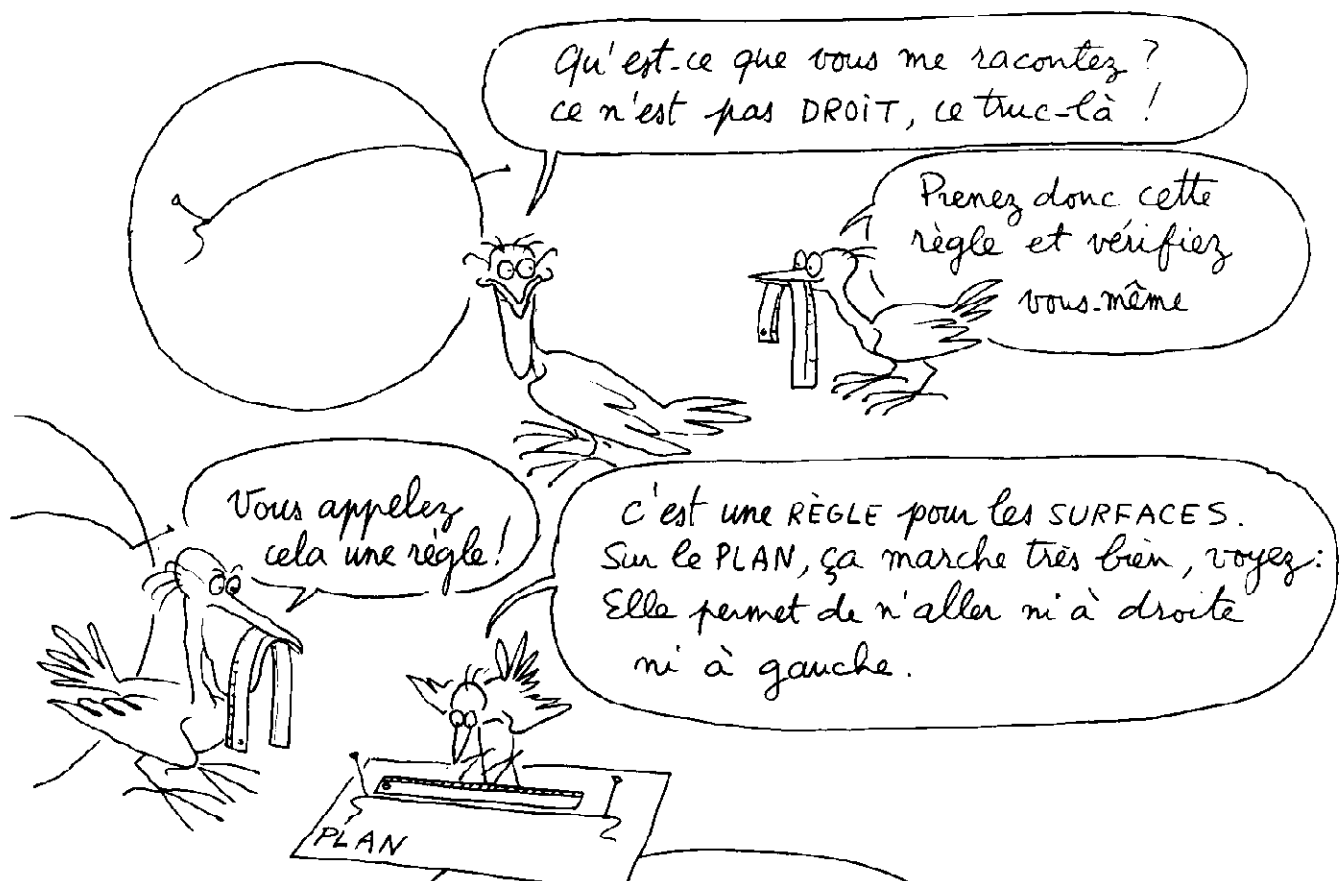 Qu'est-ce que vous me racontez ?
ce n'est pas DROIT, ce truc-là !
Prenez donc cette
règle et vérifiez
vous-même
Vous appelez
cela une règle !
C'est une RÈGLE pour les SURFACES.
Sur le PLAN, ça marche très bien, voyez :
Elle permet de n'aller ni à droite
ni à gauche.
PLAN